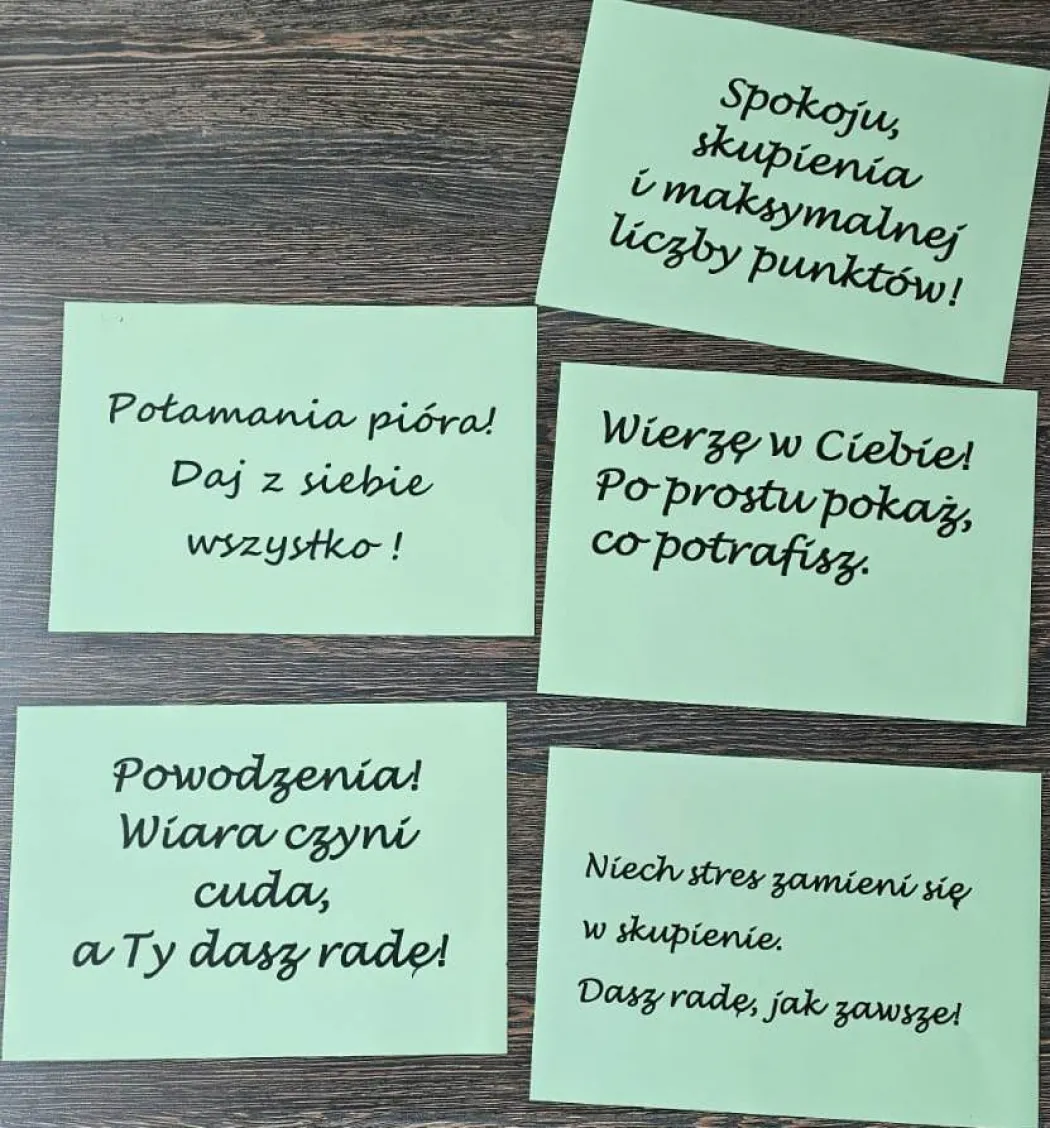 Spokoju,
skupienia
i maksymalnej
liczby punktów!
Połamania pióra!
Daj z siebie
wszystko !
Wierzę w Ciebie!
Po prostu pokaż,
co potrafisz.
Powodzenia!
Wiara czyni
cuda,
a Ty dasz radę!
Niech stres zamieni się
w skupienie.
Dasz radę, jak zawsze!